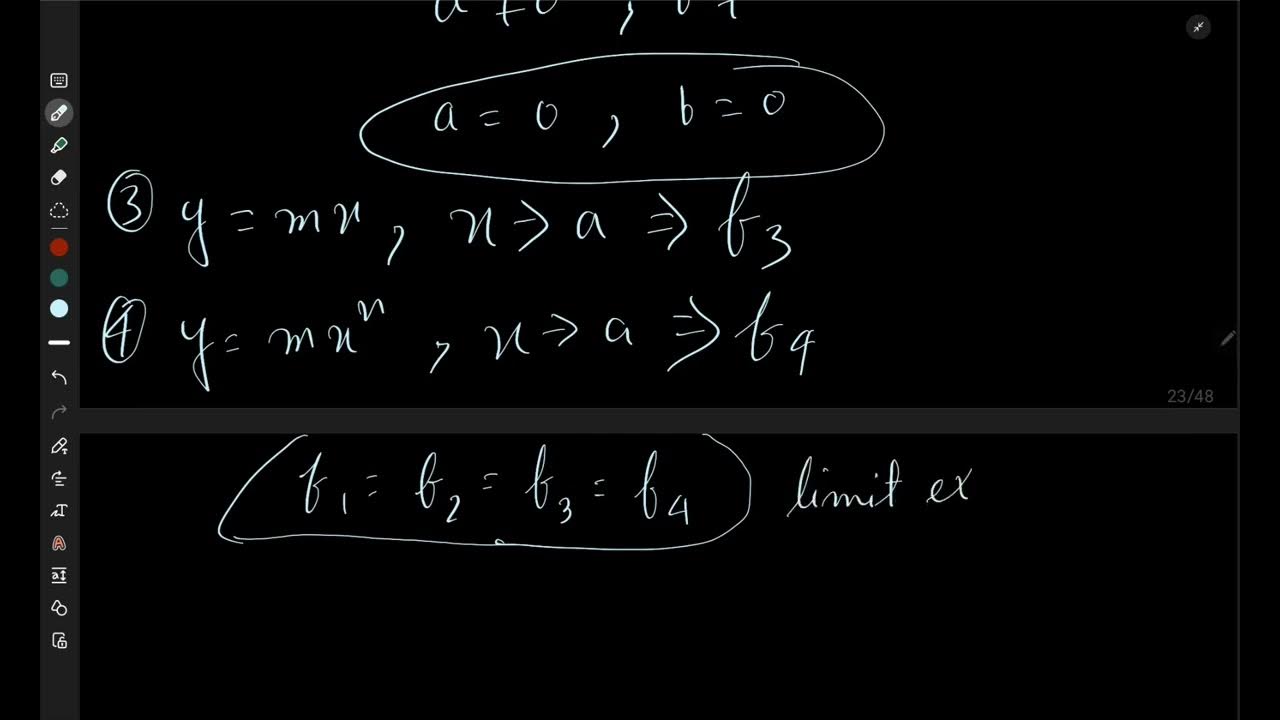 a = 0 , b = 0
③ y = mx , x → a ⇒ f₃
④ y = mxⁿ , x → a ⇒ f₄
23/48
f₁ = f₂ = f₃ = f₄ limit ex